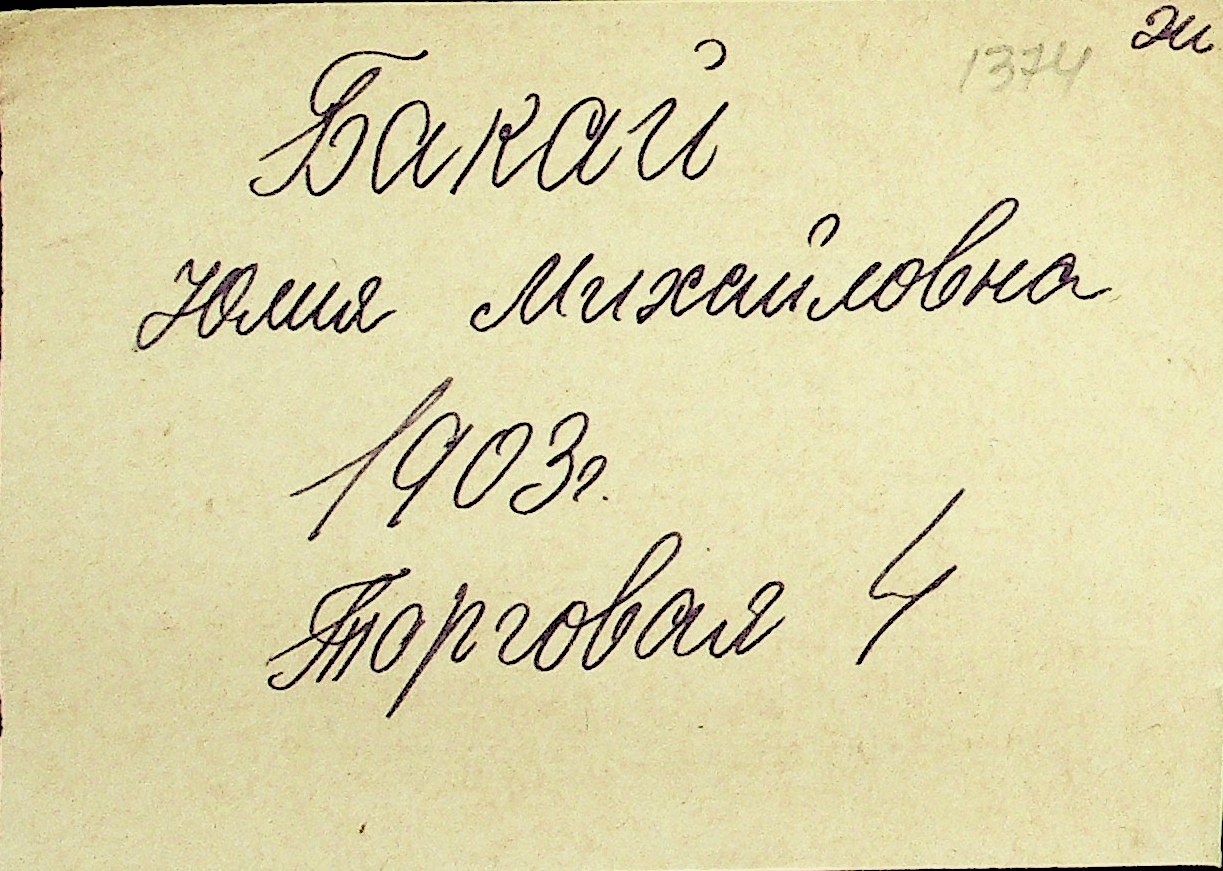 1374
Бакай
Юлия Михайловна
1903г.
Торговая 4